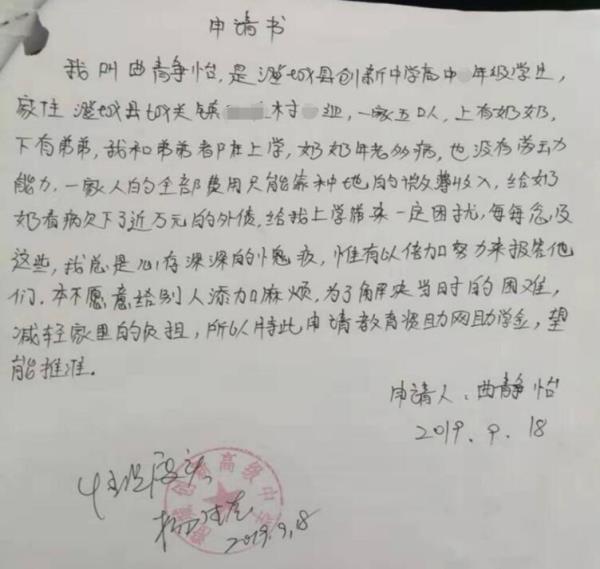 申请书
我叫曲静怡,是滏城县创新中学高中 年级学生,
家住 城县城关镇 村 组,一家五口人,上有奶奶,
下有弟弟,我和弟弟都在上学,奶奶年老多病,也没有劳动力
能力.一家人的全部费用只能靠种地的微薄收入,给奶
奶看病欠下了近万元的外债,给我上学带来一定困扰,每每念及
这些,我总是心存深深的愧疚,惟有以倍加努力来报答他
们.本不愿意给别人添加麻烦,为了解决当时的困难,
减轻家里的负担,所以特此申请教育资助网助学金,望
能批准.
申请人:曲静怡
2019.9.18
高级中
2019.9.18